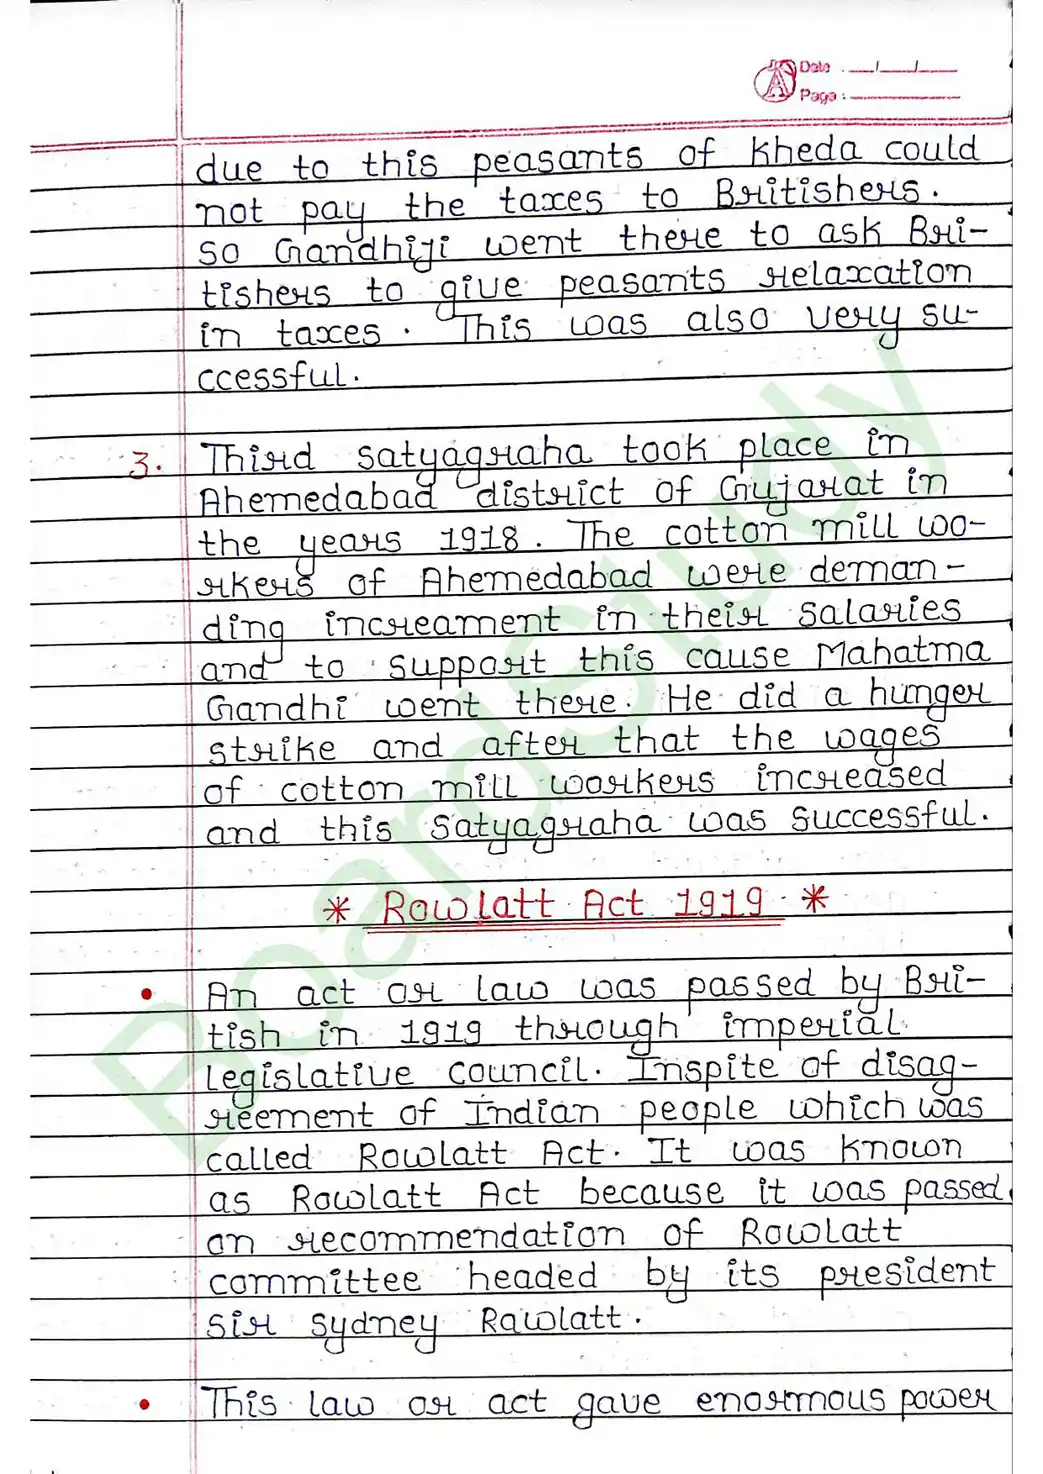 Date : __/__/__
Page :
due to this peasants of Kheda could
not pay the taxes to Britishers.
so Gandhiji went there to ask Bri-
tishers to give peasants relaxation
in taxes. This was also very su-
ccessful.
3. Third Satyagraha took place in
Ahemedabad district of Gujarat in
the years 1918. The cotton mill wo-
rkers of Ahemedabad were deman-
ding increament in their salaries
and to support this cause Mahatma
Gandhi went there. He did a hunger
strike and after that the wages
of cotton mill workers increased
and this Satyagraha was successful.
* Rowlatt Act 1919 *
• An act or law was passed by Bri-
tish in 1919 through imperial
Legislative council. Inspite of disag-
reement of Indian people which was
called Rowlatt Act. It was known
as Rowlatt Act because it was passed
on recommendation of Rowlatt
committee headed by its president
sir sydney Rawlatt.
• This law or act gave enormous power
BoardStudy